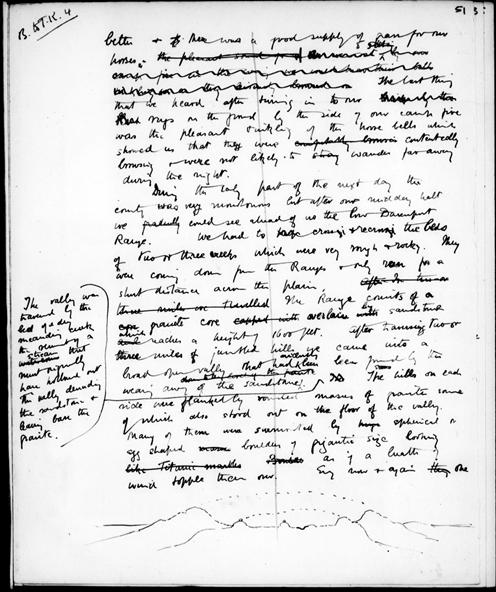 B. & T. K. 4
51 3
better & there was a good supply of grass for our
horses.
The last thing
that we heard after turning in to our
rugs on the ground by the side of our camp fire
was the pleasant tinkling of the horse bells which
showed us that they were contentedly
browsing & were not likely to stray wander far away
during the night.
During the early part of the next day the
country was very monotonous but after our midday halt
we gradually could see ahead of us the low Davenport
Range. We had to crossing & recrossing the beds
of two or three creeks which were very rough & rocky. They
were coming down from the Ranges & only ran for a
short distance across the plain,
three miles we travelled The Range consists of a
granite core capped with overlaine by sandstone
reaches a height of 1600 feet. After traversing two or
three miles of jumbled hills we came into a
broad open valley that had evidently been formed by the
wearing away of the sandstone. The hills on each
side were flanked by rounded masses of granite some
of which also stood out on the floor of the valley.
Many of them were surmounted by huge spherical or
egg shaped boulders of gigantic size looking
like Titanic marbles as if a breath of
wind topple them over. Every now & again they one
The valley was
traversed by the
bed of a dry
meandering creek
the remnant of a
stream that
must originally
have hollowed out
the valley denuding
the sandstone &
laying bare the
granite.